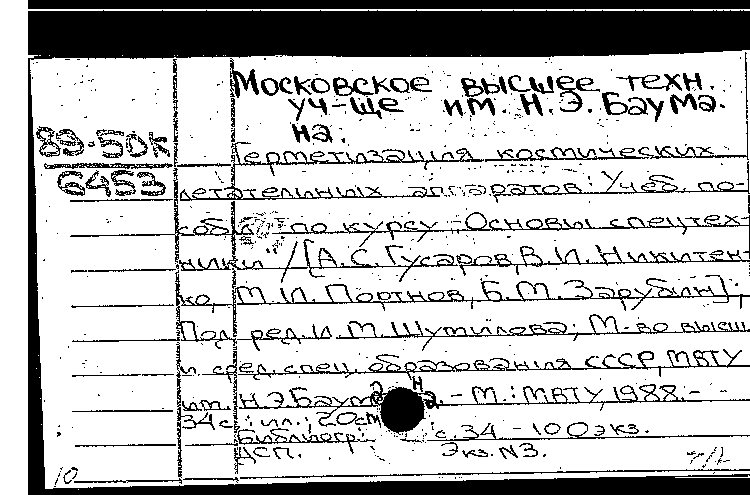 Московское высшее техн.
уч-ще им. Н.Э. Баума-
на.
89-50к
6453
Герметизация космических
летательных аппаратов: Учеб. по-
собие по курсу „Основы спецтех-
ники" / [А.С. Гусаров, В.И. Никитен-
ко, М.И. Портнов, Б.М. Зарубин];
Под ред. И.М. Шутилова; М-во высш.
и сред. спец. образования СССР, МВТУ
им. Н.Э. Баумана. - М.: МВТУ, 1988. -
34 с.: ил.; 20 см
Библиогр.: с. 34 - 100 экз.
ДСП. Экз. N3.
10